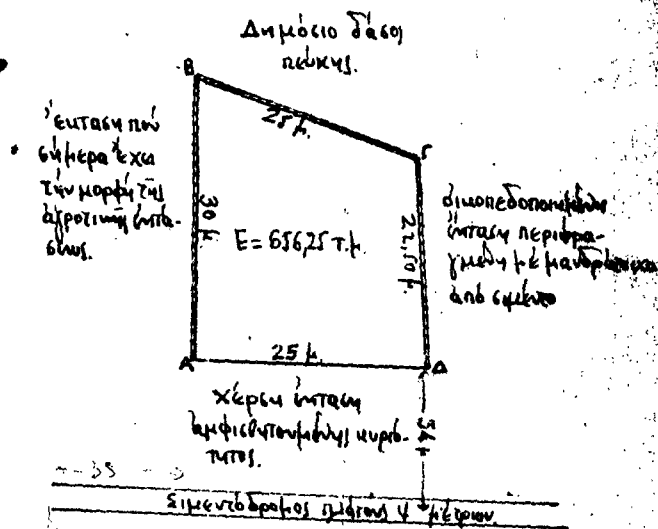 Δημόσιο δάσος
πεύκης.
Β
25 μ.
Γ
ἔκταση πού
σήμερα ἔχει
τήν μορφή τῆς
ἀγροτικῆς ἐκτά-
σεως.
30 μ.
Ε = 656,25 τ.μ.
22,50 μ.
οἰκοπεδοποιημένη
ἔκταση περιφρα-
γμένη μέ
ἀπό τσιμέντο
Α
25 μ.
Δ
χέρση ἔκταση
ἀμφισβητουμένης κυριό-
τητος.
Τσιμεντόδρομος πλάτους 4 μέτρων.